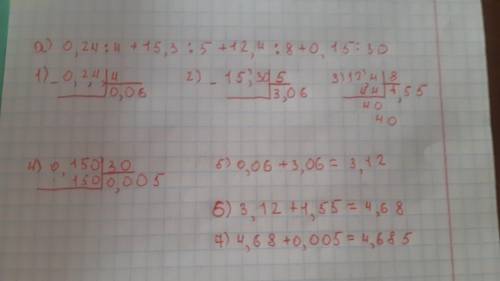 а) 0,24:4+15,3:5+12,4:8+0,15:30
1) - 0,24 | 4
0,06
2) - 15,30 | 5
3,06
3) 12,4 | 8
44 1,55
40
40
4) 0,150 | 30
150 0,005
5) 0,06+3,06=3,12
6) 3,12+1,55=4,68
7) 4,68+0,005=4,685